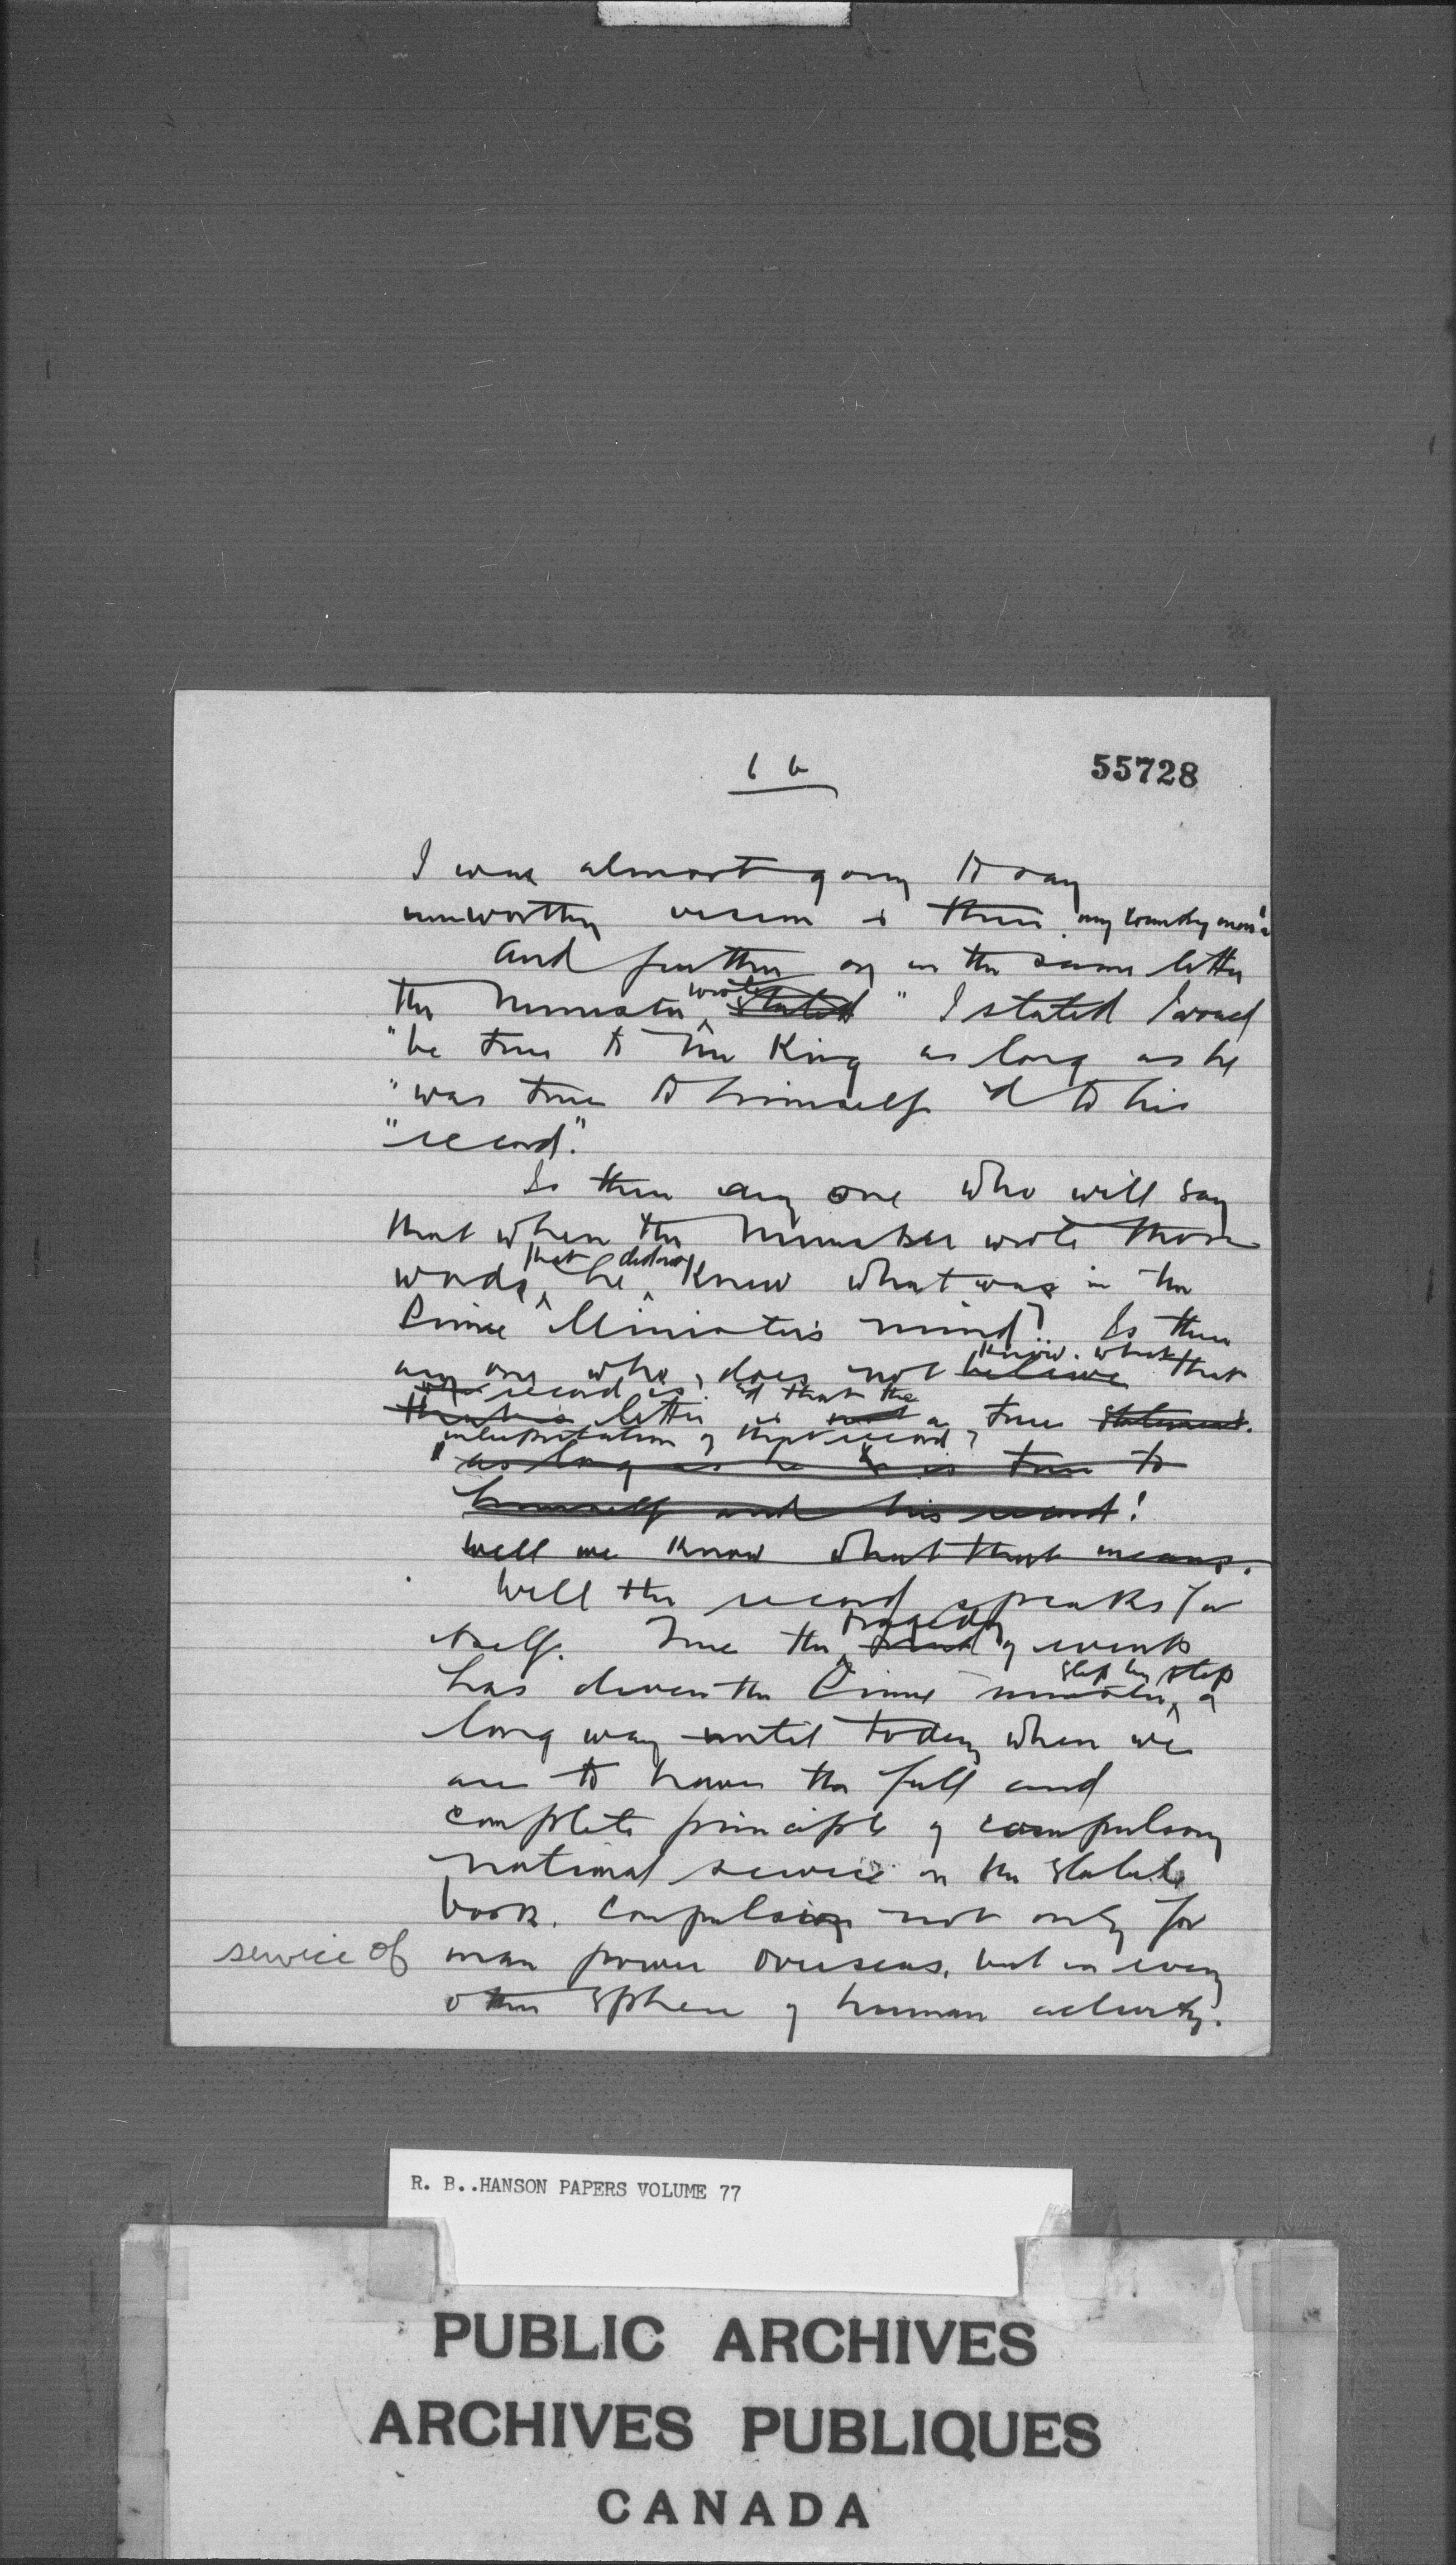 16
55728
I was almost going to say
unworthy vision is this, my countrymen!
And further on in the same letter
the Minister wrote stated "I stated I would
"be true to Mr King as long as he
"was true to himself & to his
"record".
Is there any one who will say
that when the Minister wrote those
words, that he did not know what was in the
Prime Minister's mind? Is there
any one who does not believe know what that
record is & that the
letter is not a true statement.
interpretation of that record?
as long as he is true to
himself and his record!
Well we know what that means.
Well the record speaks for
itself. True the trend tragedy of events
has driven the Prime Minister, step by step a
long way until today when we
are to have the full and
complete principle of compulsory
national service on the Statute
book. Compulsion not only for
service of man power overseas, but in every
other sphere of human activity.
R. B..HANSON PAPERS VOLUME 77
PUBLIC ARCHIVES
ARCHIVES PUBLIQUES
CANADA